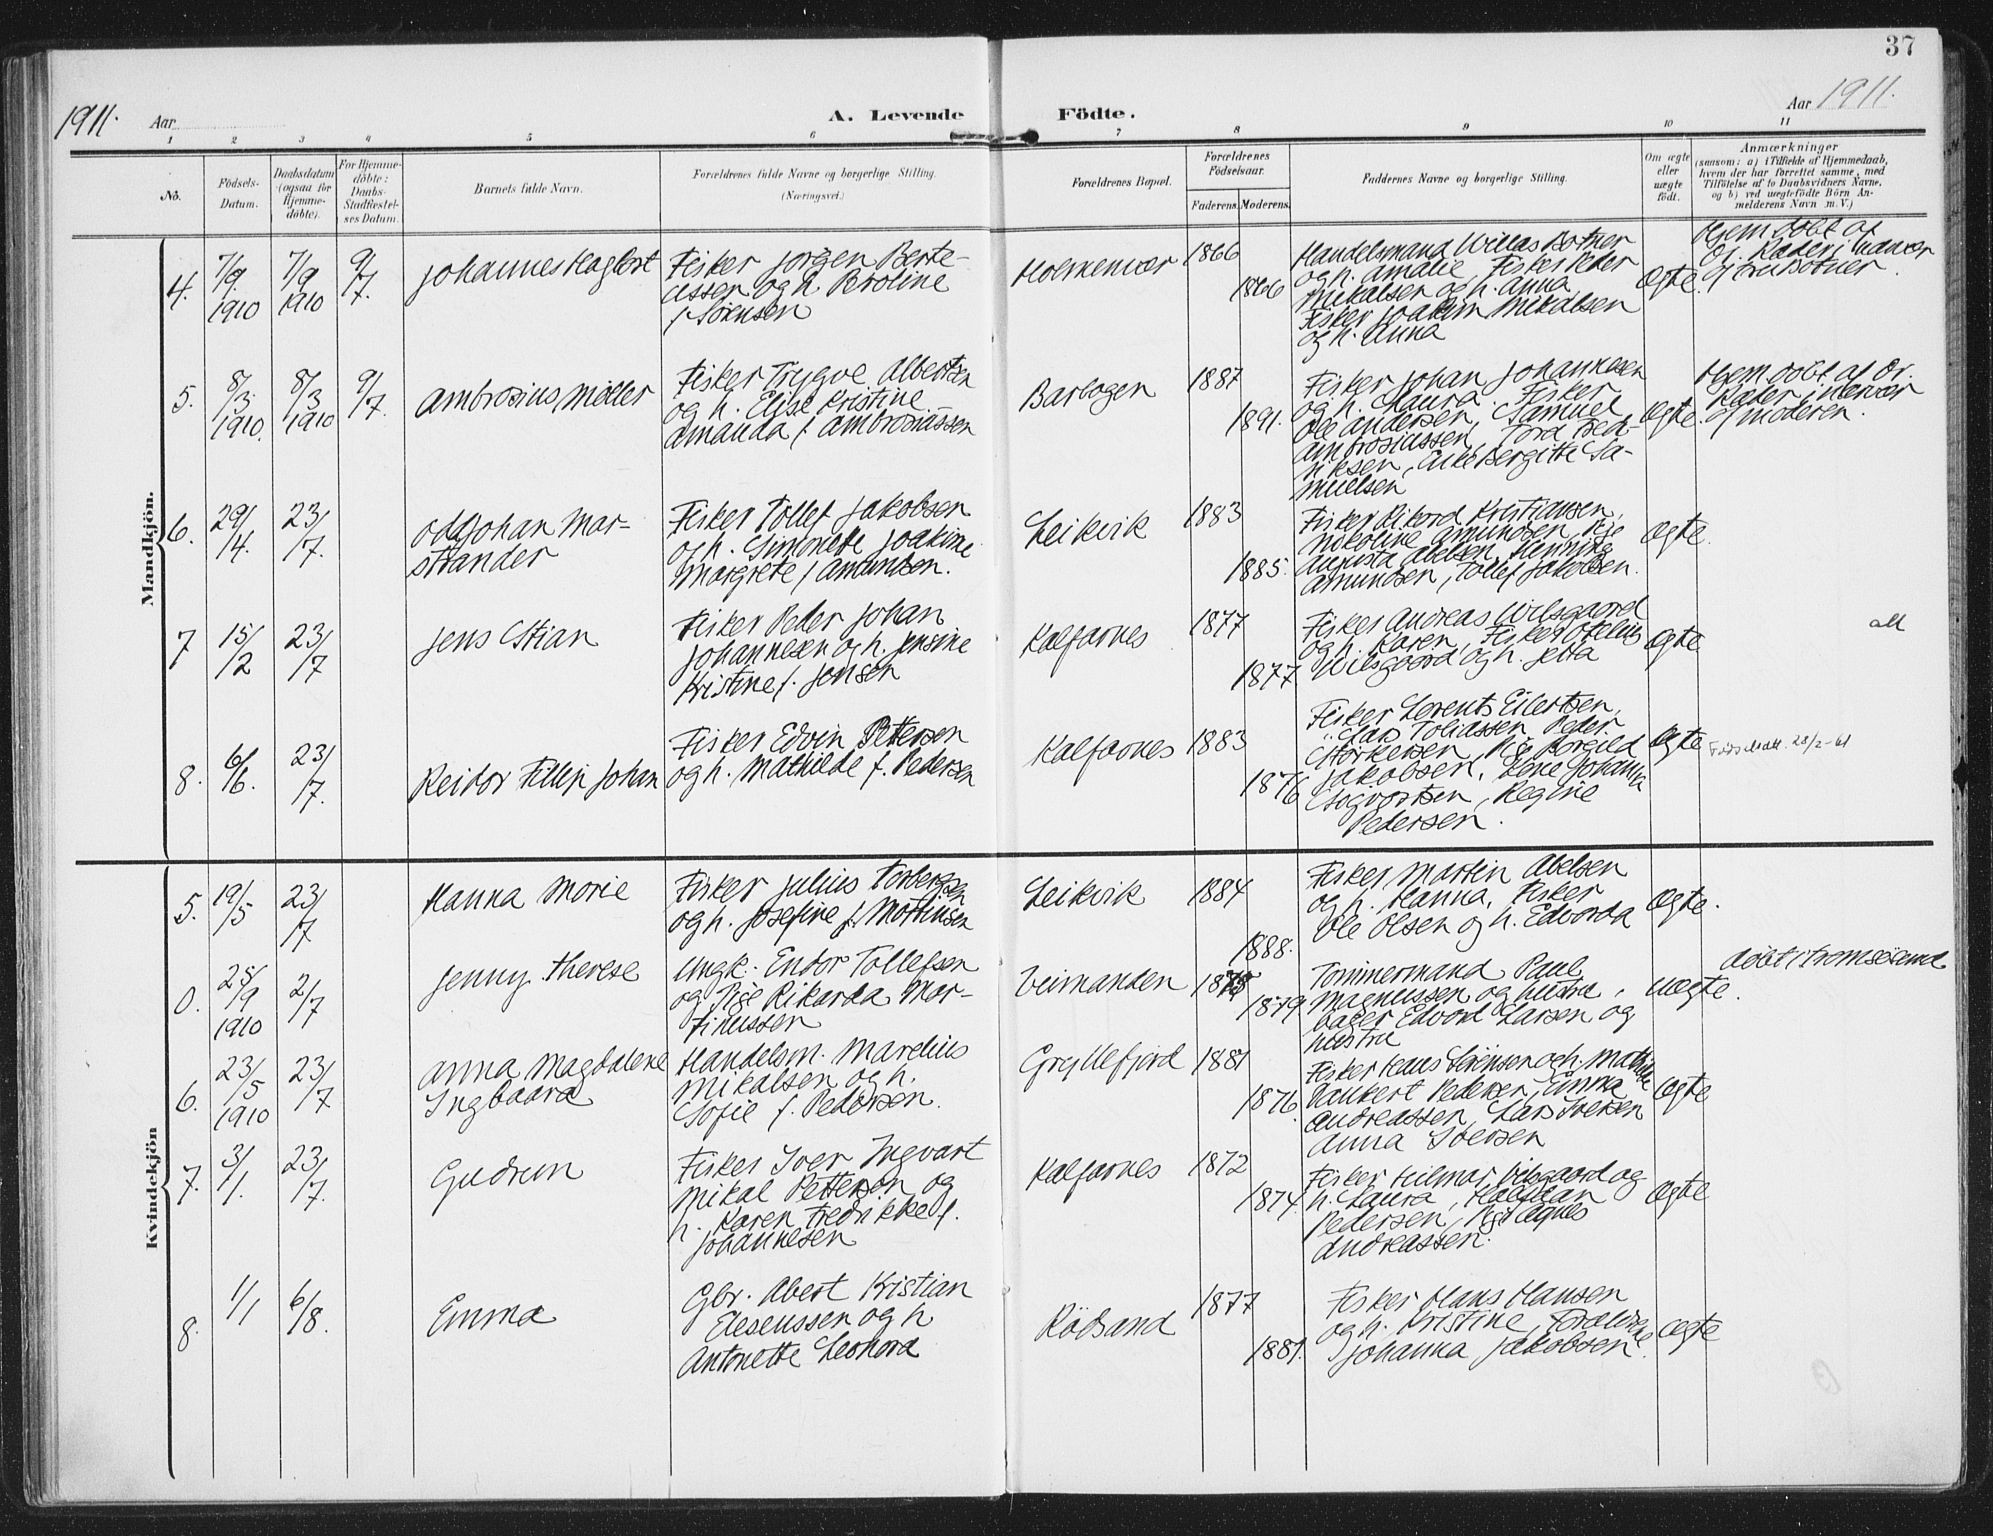 37
1911.
Aar
A. Levende
Födte.
Aar 1911.
1 2 3 4 5 6 7 8 9 10 11
No.
Födsels-
Datum.
Daabsdatum
(ogsaa for
Hjemme-
döbte).
For Hjemme-
döbte:
Daabs-
Stadfæstel-
ses Datum.
Barnets fulde Navn.
Forældrenes fulde Navne og borgerlige Stilling.
(Næringsvei.)
Forældrenes Bopæl.
Forældrenes
Födselsaar.
Faderens.
Moderens.
Faddernes Navne og borgerlige Stilling.
Om ægte
eller
uægte
födt.
Anmærkninger
(saasom: a) i Tilfælde af Hjemmedaab,
hvem der har forrettet samme, med
Tilföielse af to Daabsvidners Navne,
og b) ved uægtefödte Börn An-
melderens Navn m.V.)
Mandkjön.
4.
7/9
1910
7/9
1910
9/7.
Johannes Hagbart
Fisker Jörgen Berte-
ussen og h. Beroline
f. Sörensen
Holmenvær
1866
1866
Handelsmand Willas Botner
og h. Amalie, Fisker Peder
Mikalsen og h. Anna
Fisker Joakim Mikalsen
og h. Anna
Ægte.
Hjemdöbt af
5.
8/3
1910.
8/3
1910
9/7.
Ambrosius Möller
Fisker Trygve Albertsen
og h. Elise Kristine
Amanda f. Ambrosiussen
Barbogen
1887
1891.
Fisker Johan Johannesen
og h. Laura, Fisker
Ole Andersen, Samuel
Ambrosiussen, Tora Fred-
riksen, Bergitte Sa-
muelsen
Ægte.
Hjemdöbt af
og Moderen.
6.
29/4.
23/7.
Odd Johan Mar-
strander
Fisker Tollef Jakobsen
og h. Simonete Joakime
Margrete f. Amundsen.
Leikvik
1883
1885.
Fisker Rikard Kristiansen,
Nikoline Amundsen, Pige
Augusta Abelsen, Henning
Amundsen, Tollef Jakobsen.
Ægte.
7
15/2
23/7
Jens Stian
Fisker Peder Johan
Johannesen og h. Jensine
Kristine f. Jensen
Kalfarnes
1877
1877
Fisker Andreas Wilsgaard
og h. Karen, Fisker Ofelius
Wilsgaard og h. Jetta
Ægte
att
8.
6/6.
23/7.
Reidar Fillip Johan
Fisker Edvin Pettersen
og h. Mathilde f. Pedersen
Kalfarnes
1883
1876
Fisker Lorents Eilertsen,
" Lars Tobiassen, Peder
Störkersen, Pige Borgild
Jakobsen, Lene Johanna
Sigvartsen, Regine
Pedersen.
Ægte
Födselsatt. 28/2-61
Kvindekjön
5.
19/5
23/7
Hanna Marie
Fisker Julius Torbergsen
og h. Josefine f. Martinsen
Leikvik
1884
1888.
Fisker Martin Abelsen
og h. Hanna, Fisker
Ole Olsen og h. Edvarda
Ægte.
0.
25/9
1910
2/7
Jenny Therese
Ungk. Endor Tollefsen
og Pige Rikarda Mar-
tinussen
1879
Tömmermand Paul
Magnussen og hustru,
bager Edvard Larsen og
hustru
uægte.
döbt i Tromsösund
6.
23/5
1910
23/7
Anna Magdalene
Ingbaara
Handelsm. Mardius
Mikalsen og h.
Sofie f. Pedersen.
Gryllefjord
1881
1876.
Fisker Hans Sörensen og h. Mathilde
Pedersen, Emma
Andreassen, Lars Iversen
Anna Iversen
Ægte
7.
3/1.
23/7.
Gudrun
Fisker Iver Ingvart
Mikal Pettersen og
h. Karen Fredrikke f.
Johannesen
Kalfarnes
1872
1874.
Fisker Hilmar Wilsgaard og
h. Laura, Halfdan
Pedersen, Pige Agnes
Andreassen.
Ægte
8.
1/1
6/8.
Emma
Gbr. Abert Kristian
Eleseussen og h
Antonette Leonora
Rödsand
1877
1881.
Fisker Hans Hansen
og h. Kristine, Forældrene
Johanna Jakobsen.
ægte